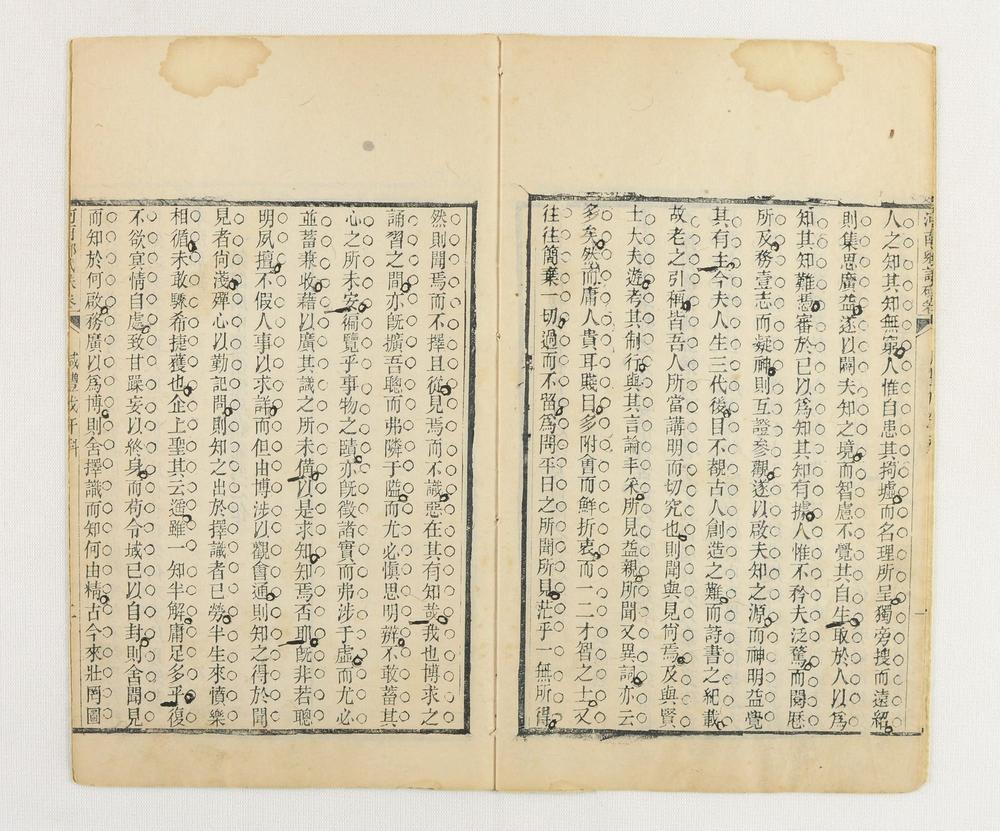 人之知其知無窮人惟自患其拘墟而名理所呈獨旁搜而遠紹
則集思廣益遂以闢夫知之境而智慮不覺其自生取於人以爲
知其知難憑審於已以爲知其知有據人惟不矜夫泛騖而閱歷
所及務壹志而凝神則互證參觀遂以啟夫知之源而神明益覺
其有主今夫人生三代後目不覩古人創造之難而詩書之紀載
故老之引稱皆吾人所當講明而切究也則聞與見何焉及與賢
士大夫遊考其制行與其言論丰采所見益親所聞又異詞亦云
多矣然而庸人貴耳賤目多附會而鮮折衷而一二才智之士又
往往簡棄一切過而不留爲問平日之所聞所見茫乎一無所得
然則聞焉而不擇且從見焉而不識惡在其有知哉我也博求之
誦習之間亦旣擴吾聰而弗隣于隘而尤必愼思明辨不敢蓄其
心之所未安徧覽乎事物之賾亦旣徵諸實而弗涉于虛而尤必
並蓄兼收藉以廣其識之所未備以是求知知焉否耶旣非若聰
明夙擅不假人事以求詳而但由博涉以觀會通則知之得於聞
見者尙淺殫心以勤記問則知之出於擇識者已勞半生來憤樂
相循未敢驟希捷獲也企上聖其云遙雖一知半解庸足多乎復
不欲實情自處致甘躁妄以終身而苟令域已以自封則舍聞見
而知於何啟務廣以爲博則舍擇識而知何由精古今來壯図圖
咸豐戊午科